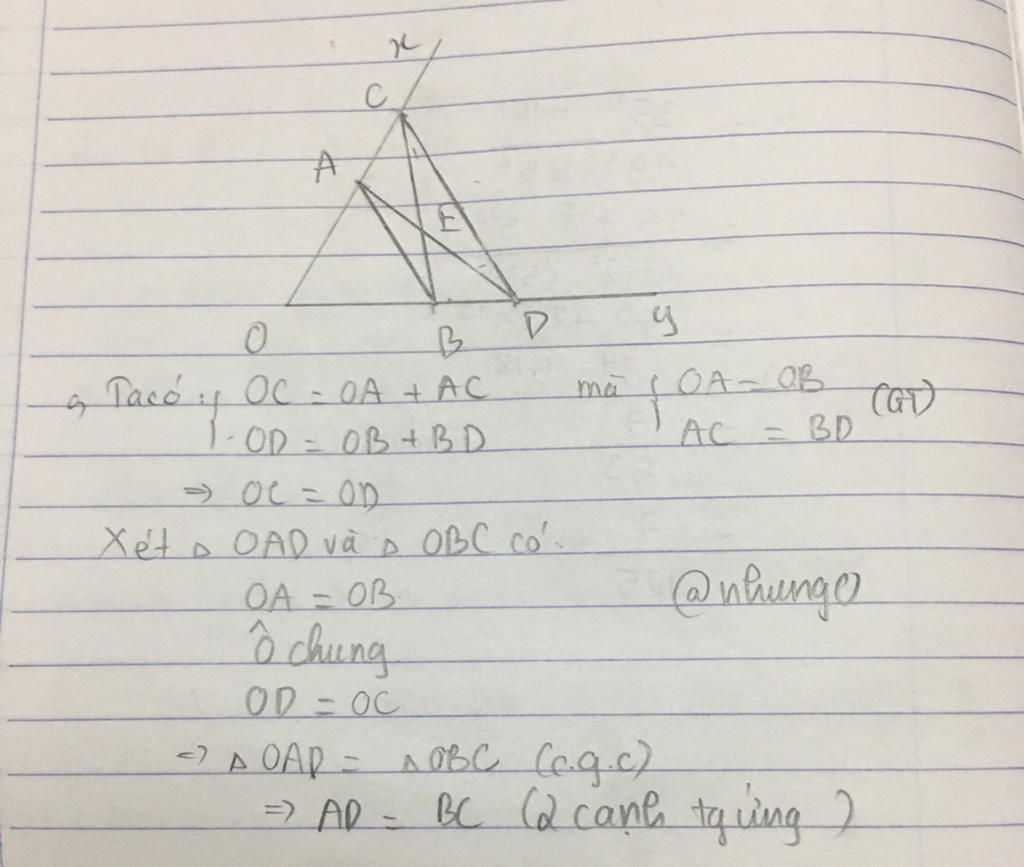 x
C
A
E
O B D y
a, Ta có: { OC = OA + AC mà { OA = OB (GT)
OD = OB + BD AC = BD
=> OC = OD
Xét Δ OAD và Δ OBC có:
OA = OB
Ô chung
OD = OC
=> Δ OAD = Δ OBC (c.g.c)
=> AD = BC (2 cạnh tg ứng)